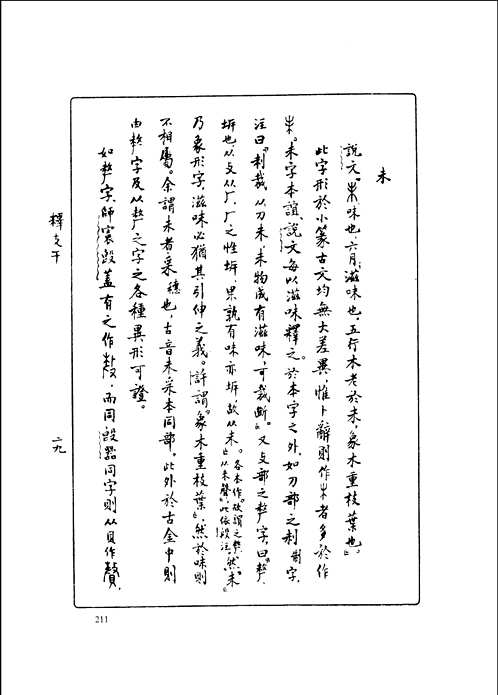 未
說文「未味也，六月滋味也，五行木老於未，象木重枝葉也」
此字形於小篆古文均無大差異，惟卜辭則作者多於作
未字本誼，說文每以滋味釋之。於本字之外，如刀部之制字，
注曰「利裁，从刀未，未物成有滋味，可裁斷。」又攴部之𠩺字，曰「𠩺，
坼也，从攴从厂，厂之性坼，果孰有味亦坼，故从未。」各本作「故謂之𠩺，从未聲」，此依段注。然「未」
乃象形字，滋味必猶其引伸之義。許謂「象木重枝葉」，然於味則
不相屬。余謂未者采穗也，古音未采本同部。此外於古金中則
由𠩺字及从𠩺之字之各種異形可證。
如𠩺字，師㝨𣪘蓋有之作，而同𣪘器同字則从貝作，
釋支干
二九
211